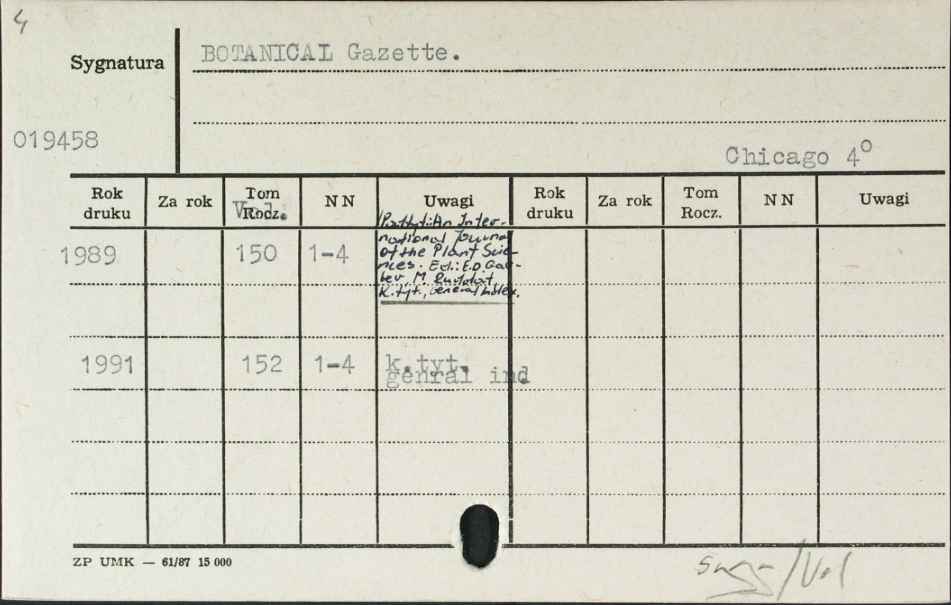 4
Sygnatura BOTANICAL Gazette.
019458
Chicago 4º
Rok druku Za rok Tom Rocz. Vol. NN Uwagi Rok druku Za rok Tom Rocz. NN Uwagi
1989 150 1-4
An Inter-
national Journal
of the Plant Scie-
nces. Ed.: E.D Gar-
ber, M.
K.tyt., General Index.
1991 152 1-4 k.tyt.
genral ind
ZP UMK — 61/87 15 000
/Vol